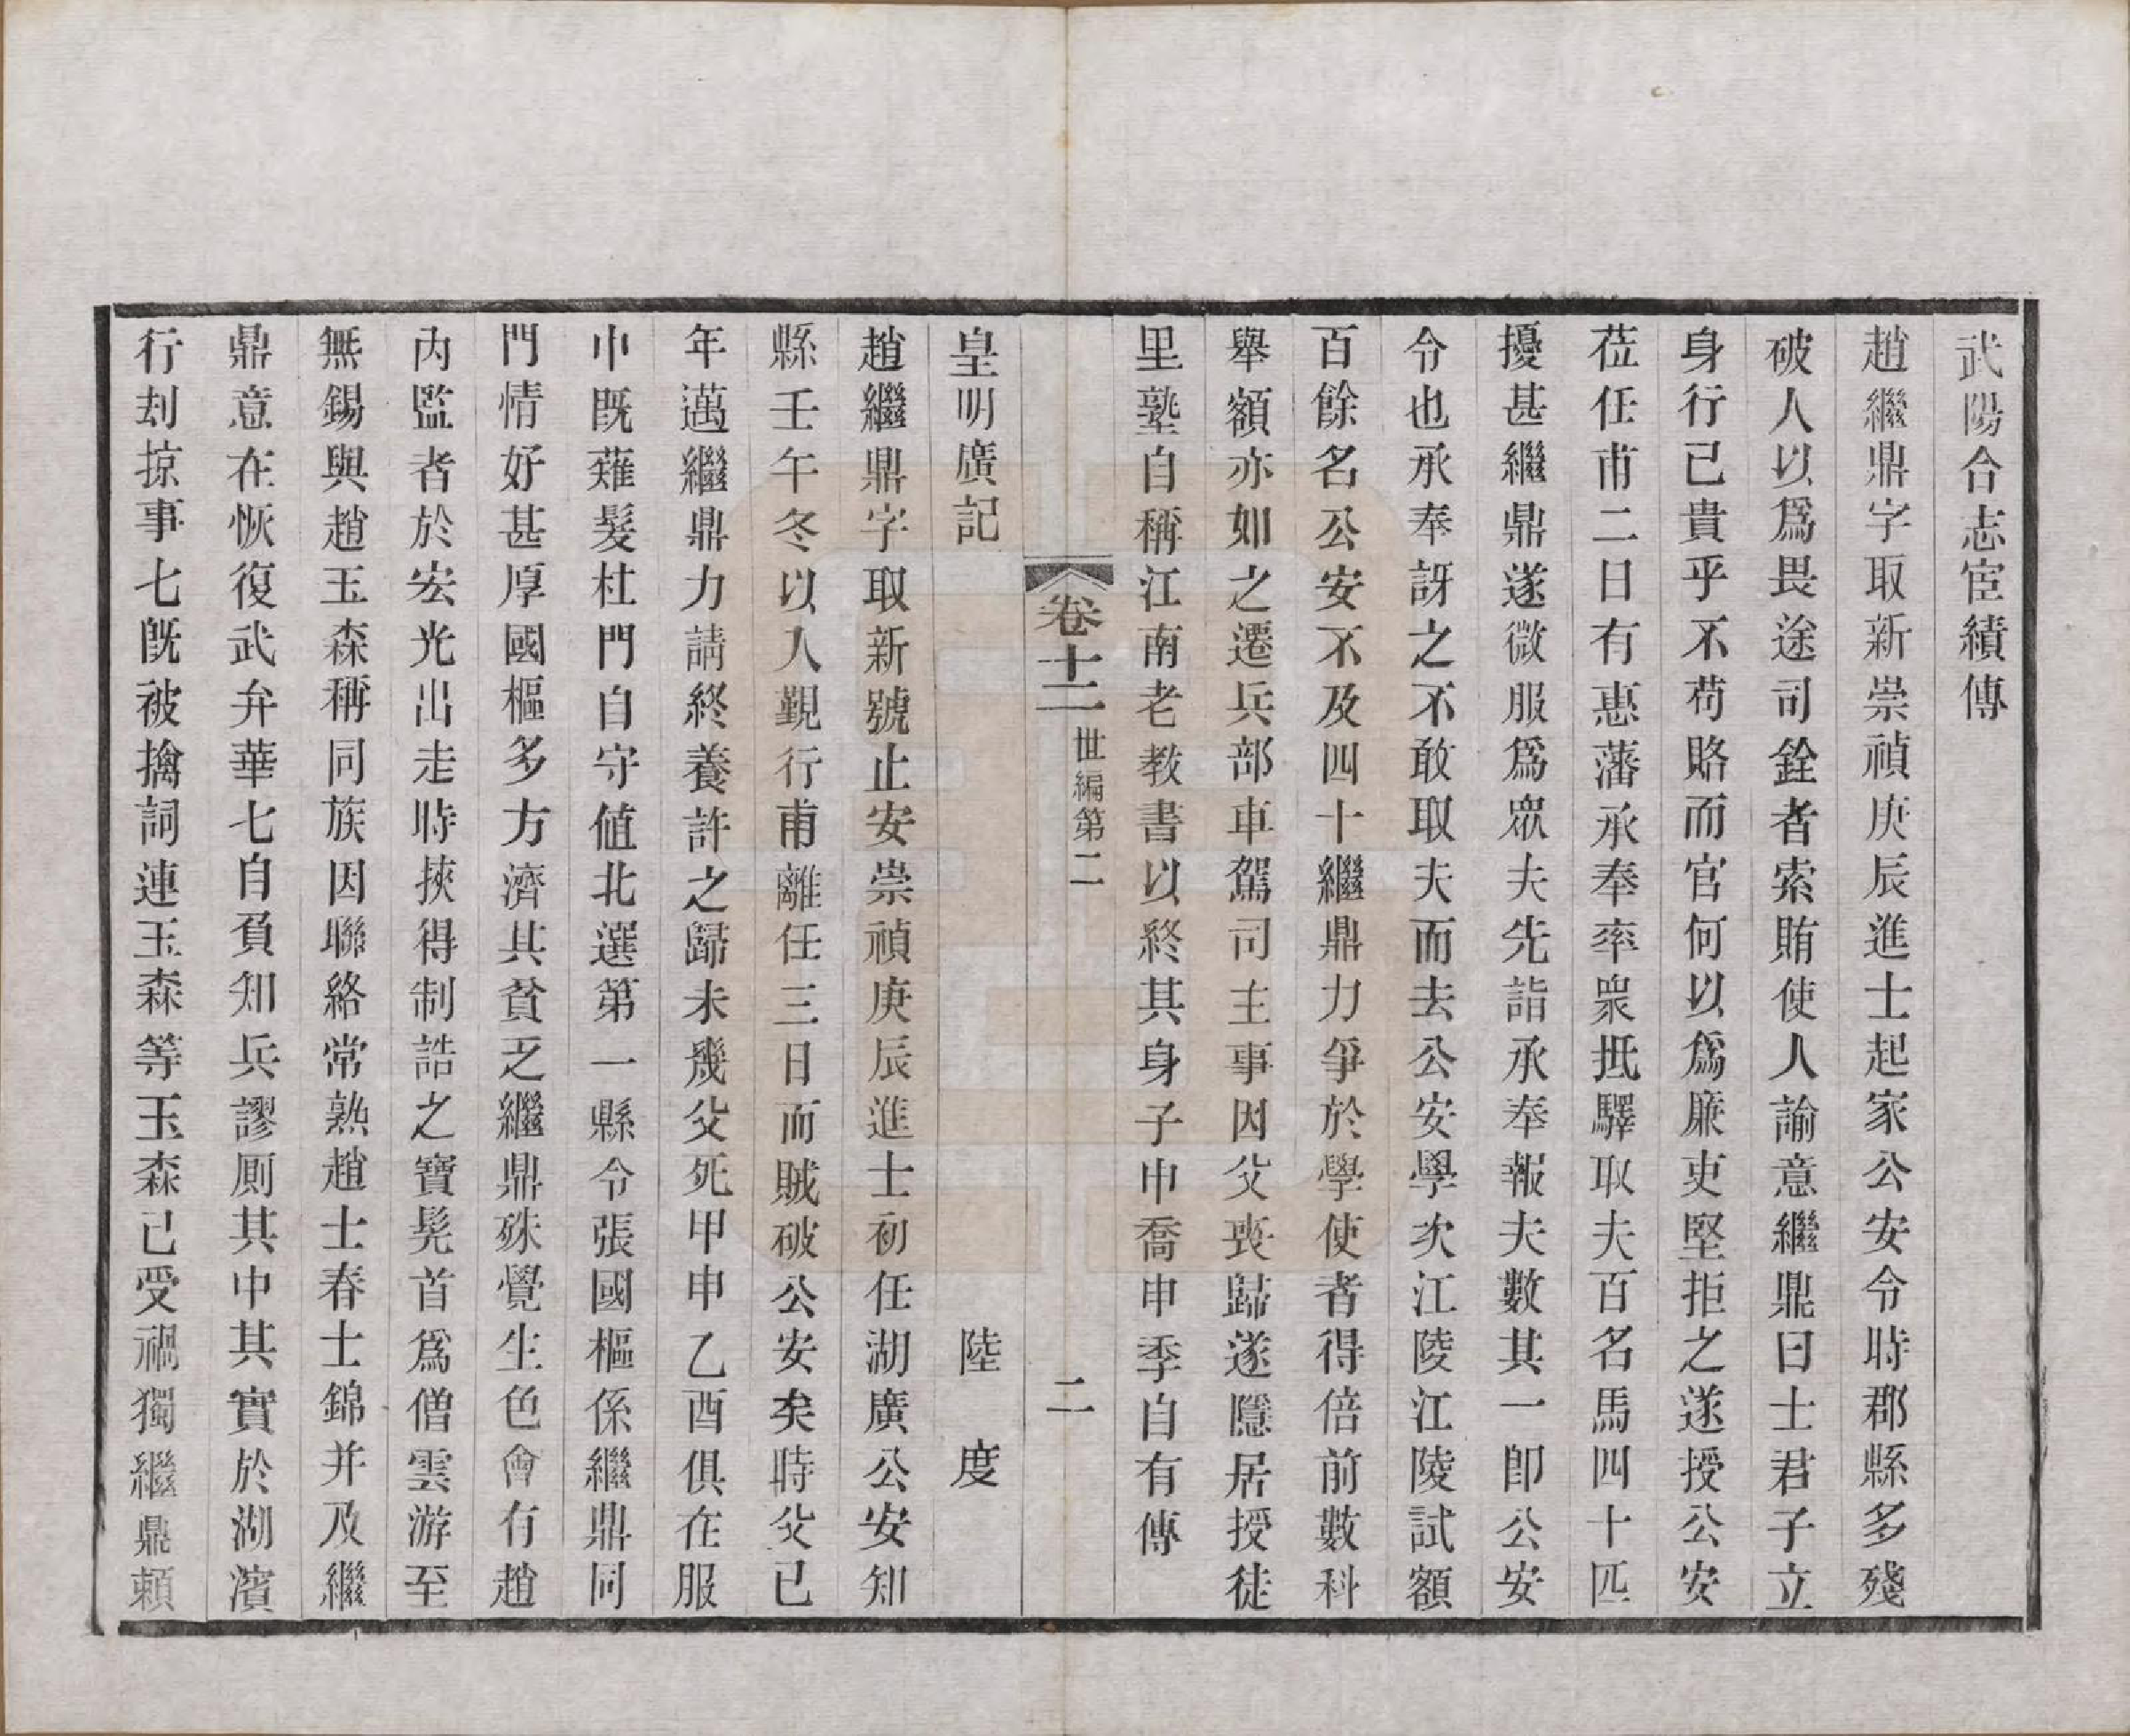 武陽合志宦績傳
趙繼鼎字取新崇禎庚辰進士起家公安令時郡縣多殘
破人以爲畏途司銓者索賄使人諭意繼鼎曰士君子立
身行己貴乎不苟賂而官何以爲廉吏堅拒之遂授公安
莅任甫二日有惠藩承奉率衆抵驛取夫百名馬四十匹
擾甚繼鼎遂微服爲眾夫先詣承奉報夫數其一卽公安
令也承奉訝之不敢取夫而去公安學次江陵江陵試額
百餘名公安不及四十繼鼎力爭於學使者得倍前數科
舉額亦如之遷兵部車駕司主事因父喪歸遂隱居授徒
里塾自稱江南老教書以終其身子申喬申季自有傳
卷十二 世編第二 二
皇明廣記 陸度
趙繼鼎字取新號止安崇禎庚辰進士初任湖廣公安知
縣壬午冬以入覲行甫離任三日而賊破公安矣時父已
年邁繼鼎力請終養許之歸未幾父死甲申乙酉俱在服
中既薙髮杜門自守值北選第一縣令張國樞係繼鼎同
門情好甚厚國樞多方濟其貧乏繼鼎殊覺生色會有趙
內監者於宏光出走時挾得制誥之寶髡首爲僧雲游至
無錫與趙玉森稱同族因聯絡常熟趙士春士錦并及繼
鼎意在恢復武弁華七自負知兵謬厠其中其實於湖濱
行刦掠事七旣被擒詞連玉森等玉森已受禍獨繼鼎賴